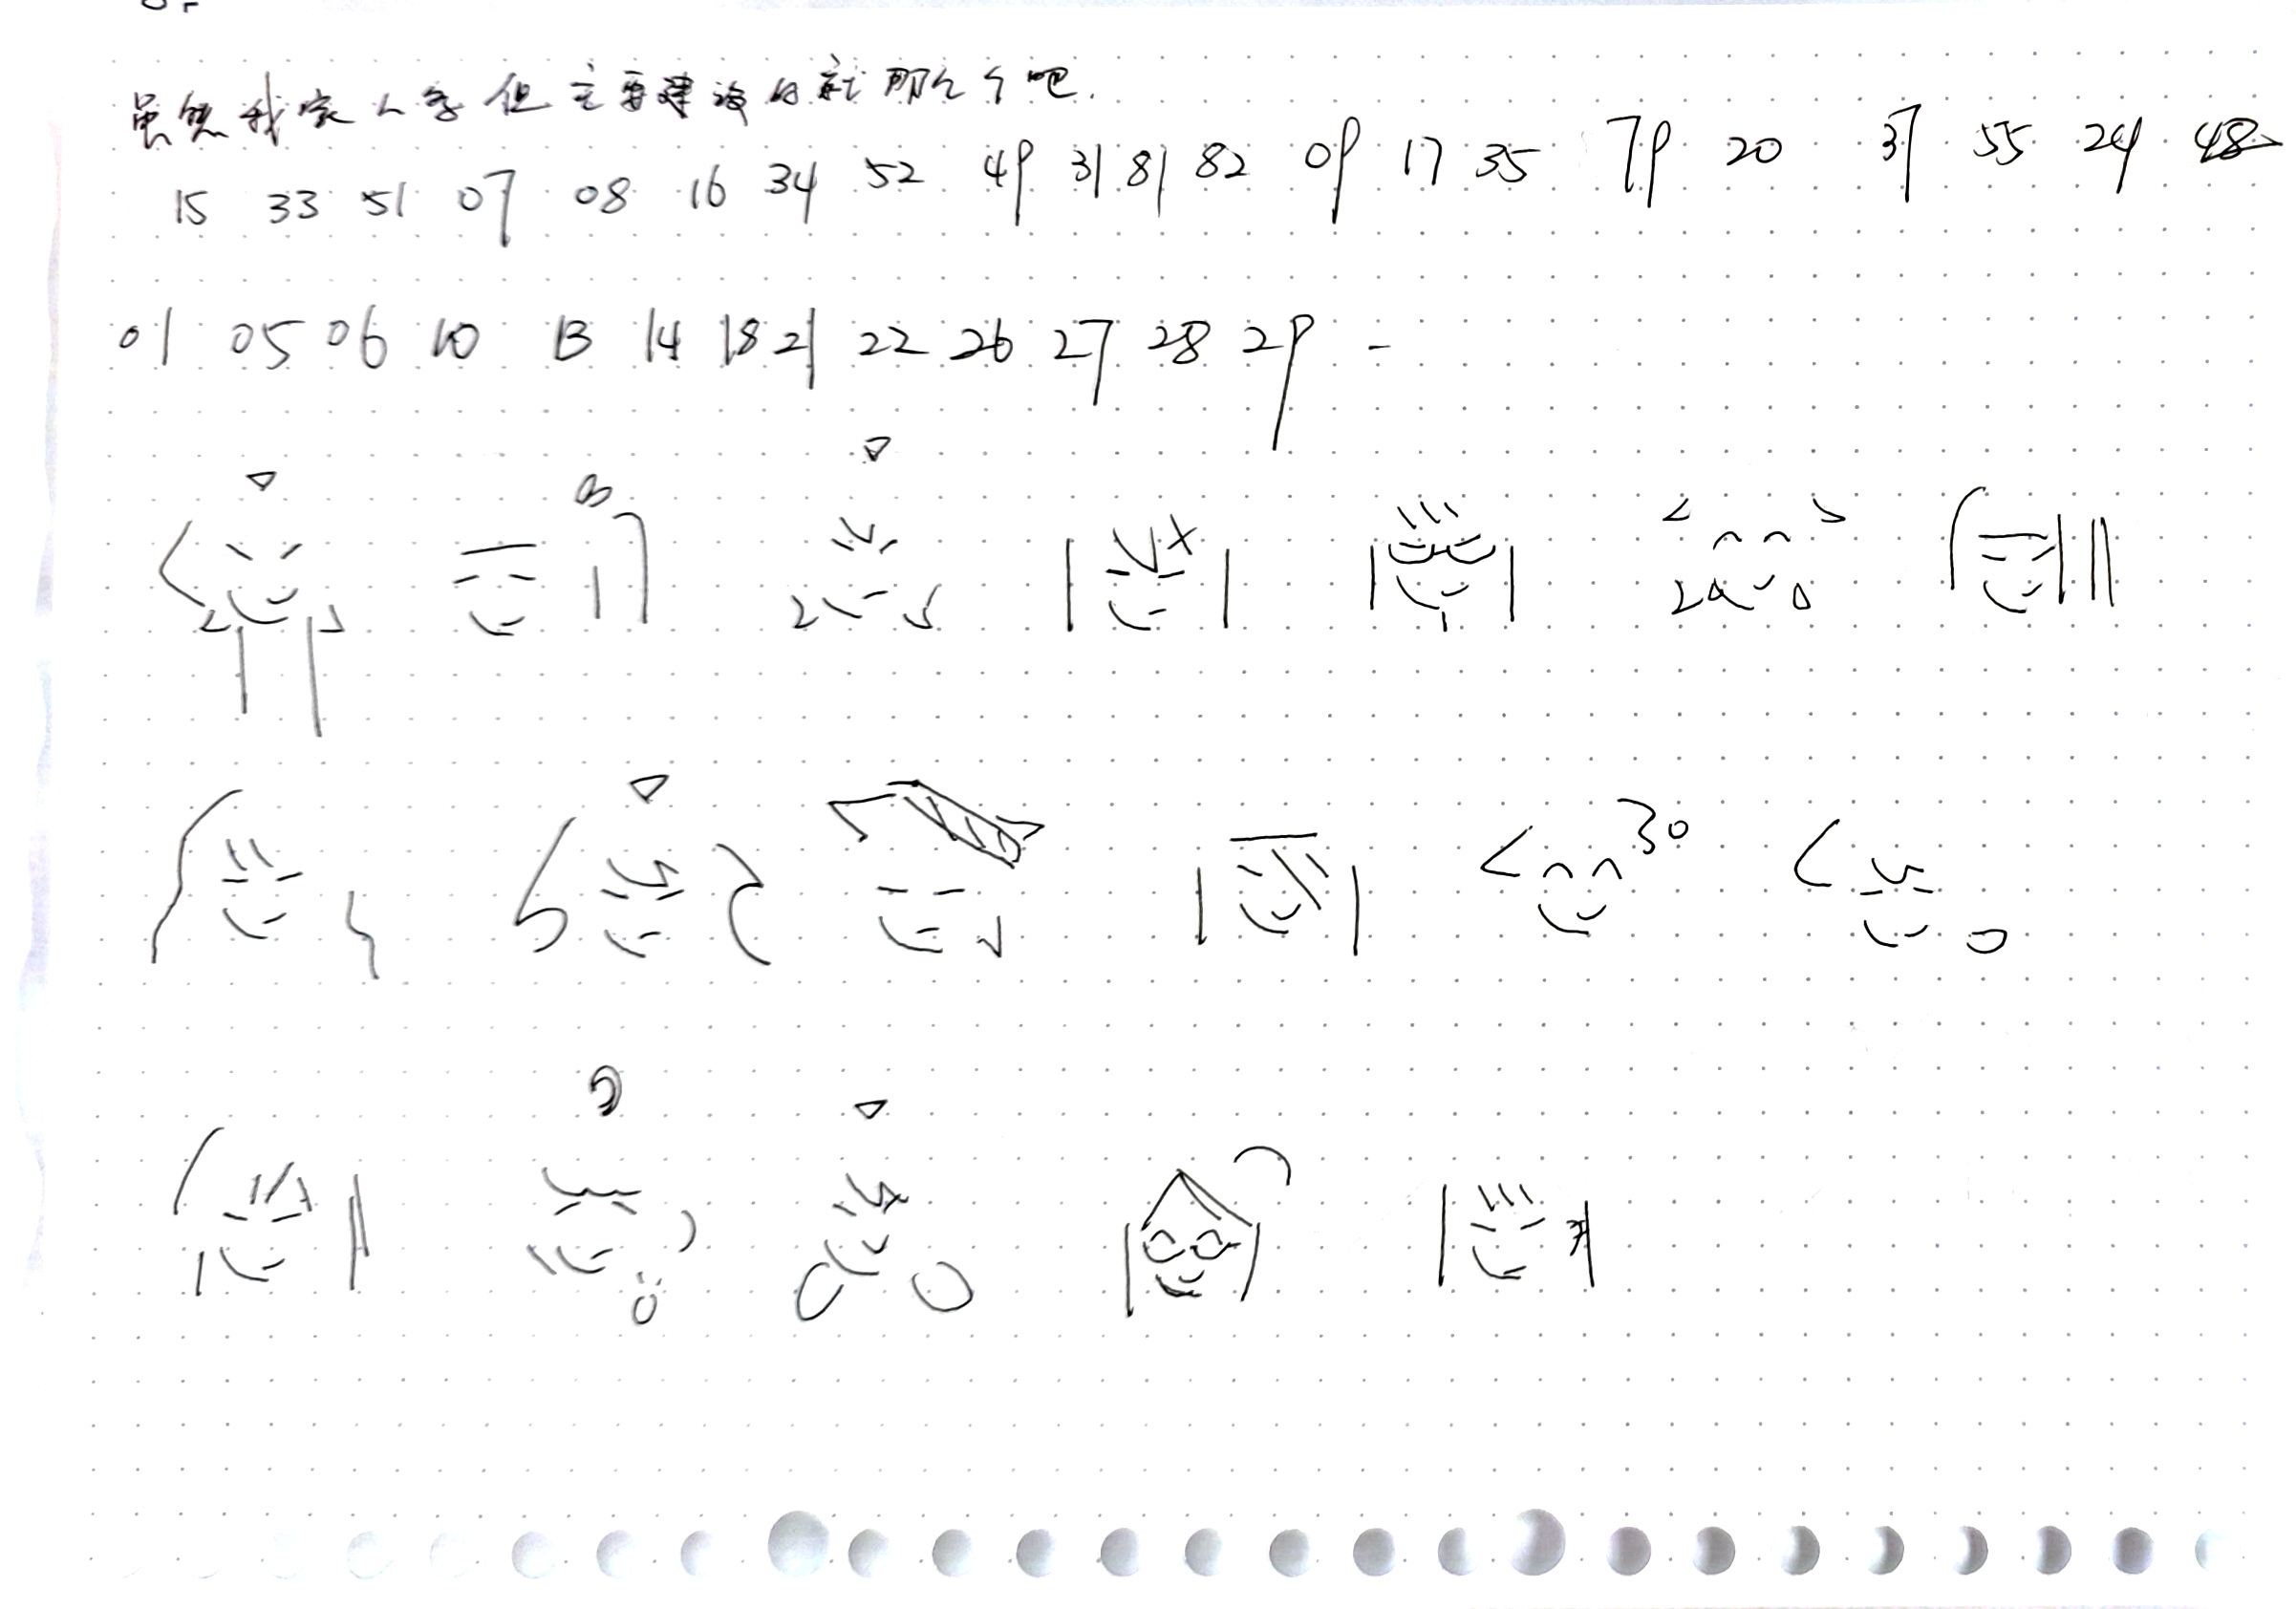 虽然我家人多但主要建设的就那几个吧.
15 33 51 07 08 16 34 52 49 31 81 82 09 17 35 79 20 37 55 24 48
01 05 06 10 13 14 18 21 22 26 27 28 29 -